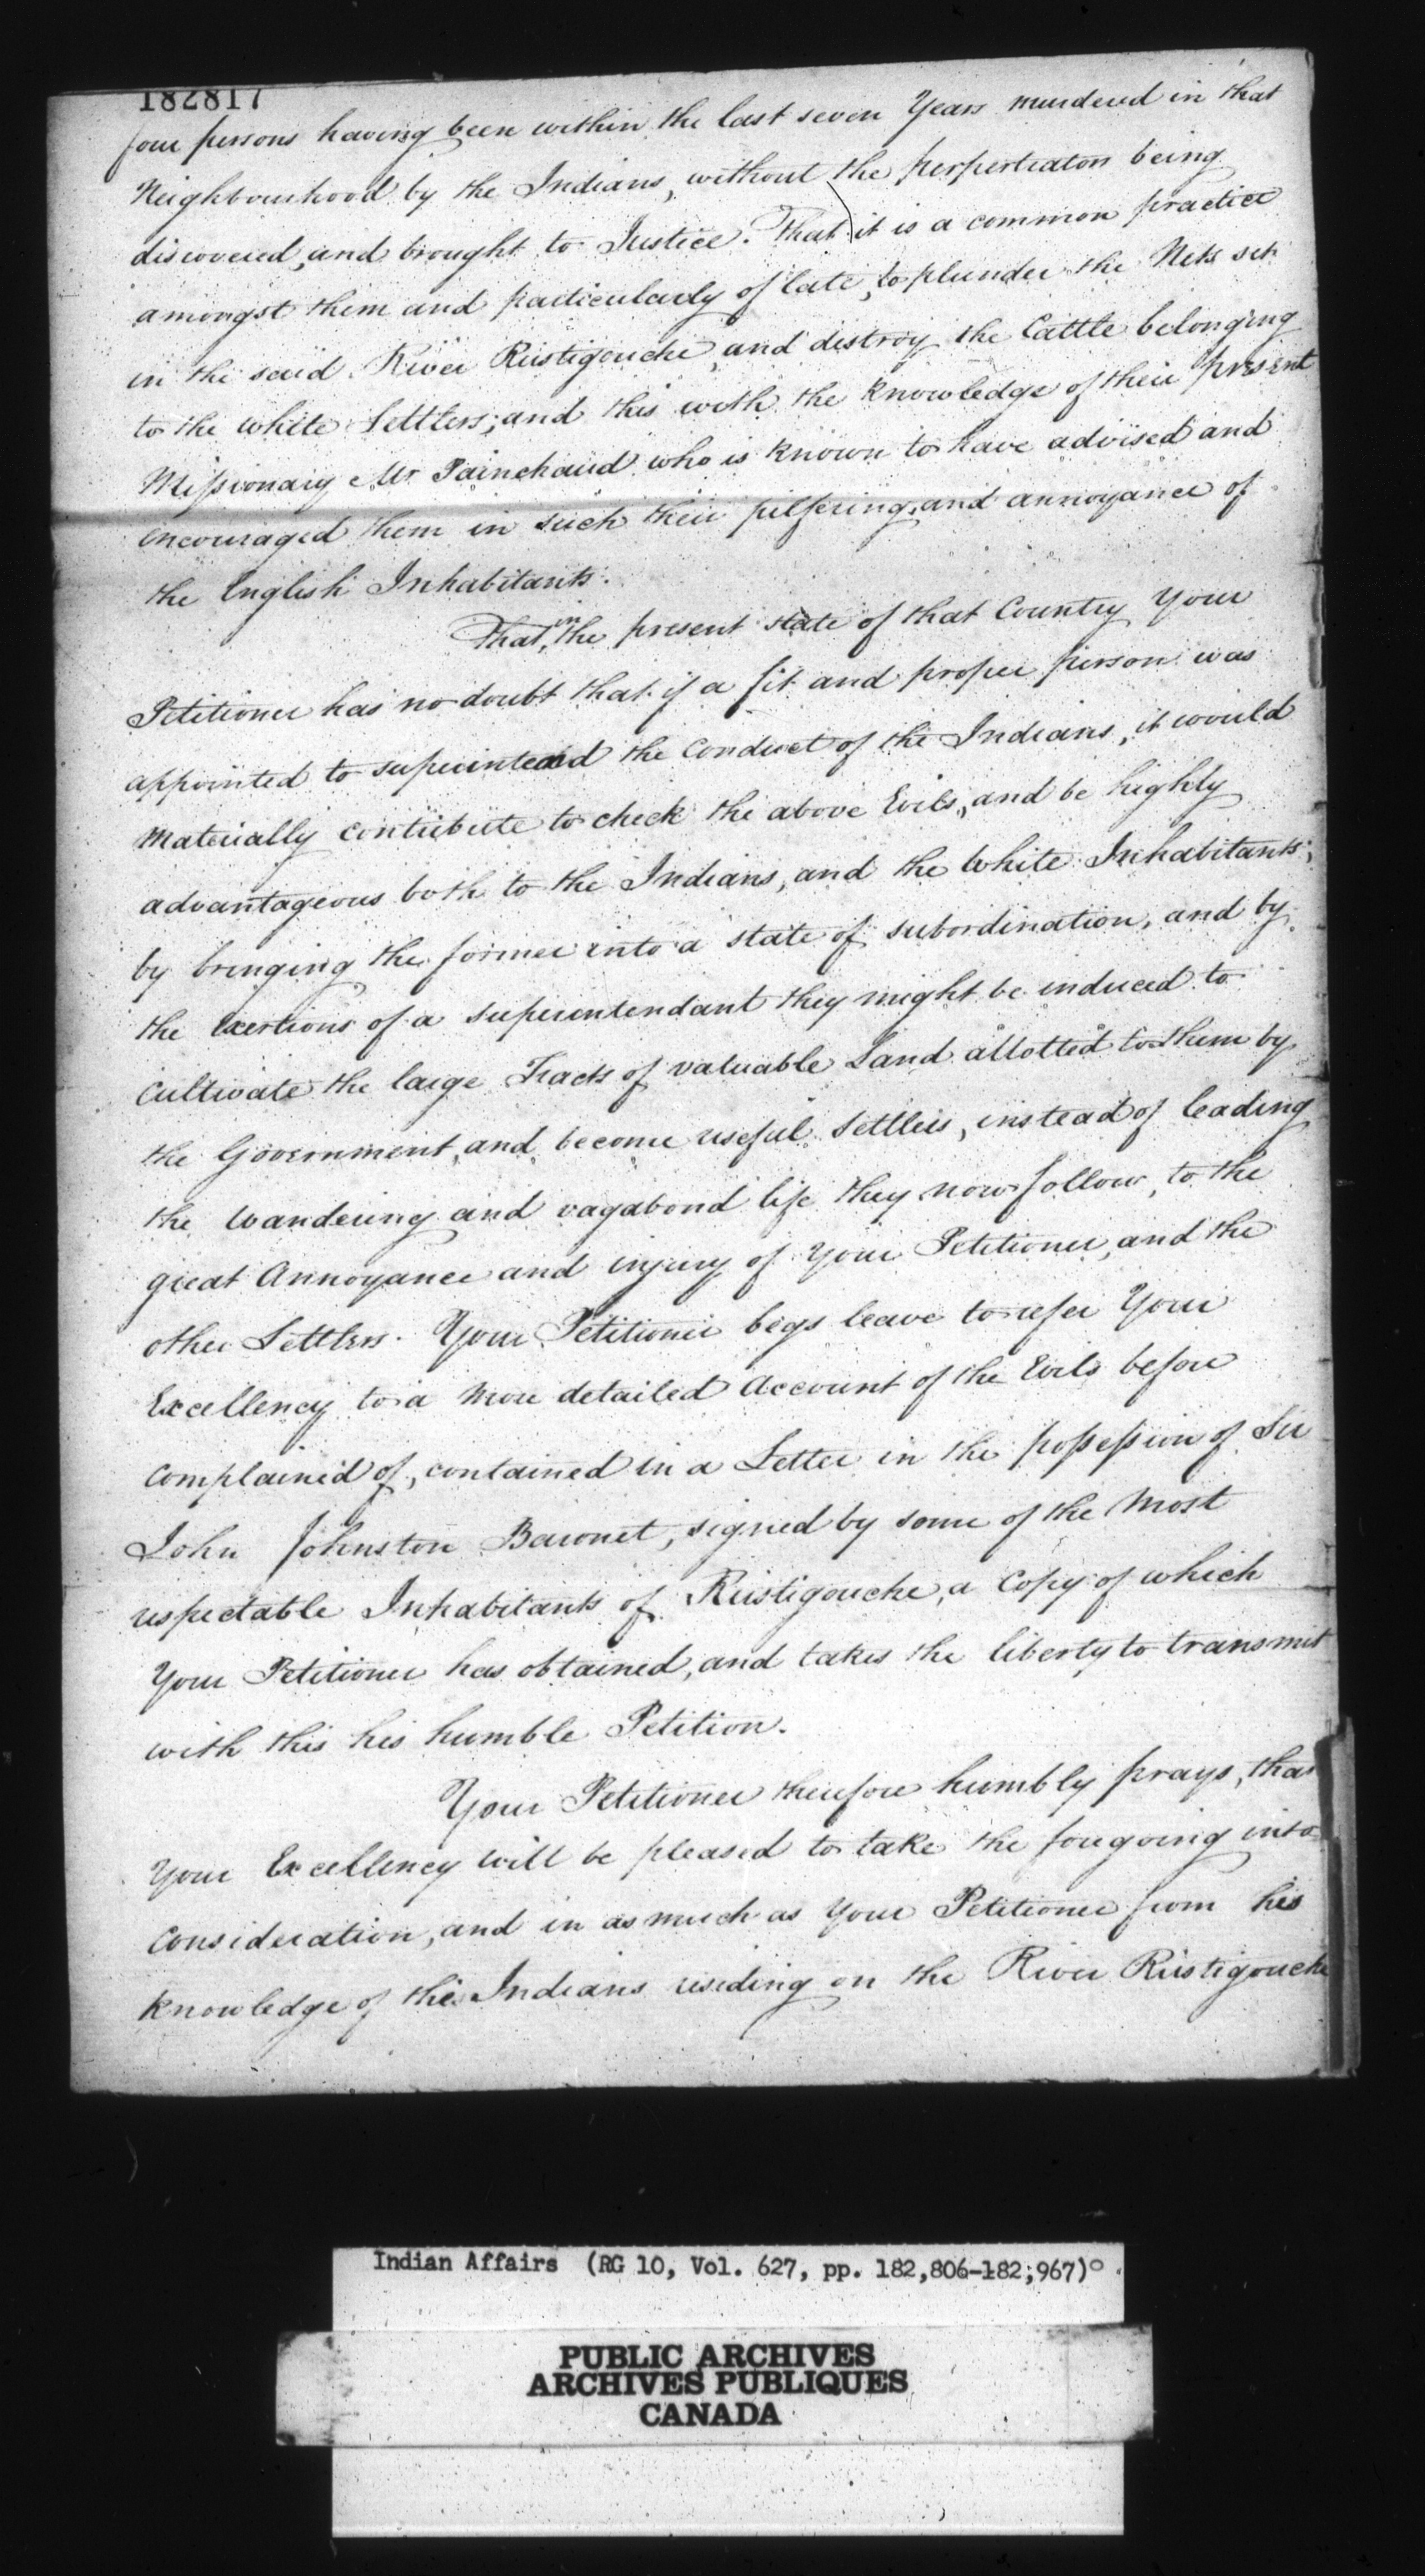 182817
four persons having been within the last seven Years murdered in that
Neighbourhood by the Indians, without the perpertrators being
discovered, and brought to Justice. That it is a common practice
amongst them and particularly of late, to plunder the Nets set
in the said River Ristigouche, and destroy the Cattle belonging
to the White Settlers; and this with the knowledge of their present
Missionary Mr. Painchaud who is known to have advised and
encouraged them in such their pilfering, and annoyance of
the English Inhabitants.
That, in the present state of that Country Your
Petitioner has no doubt that if a fit and proper person was
appointed to superintend the Conduct of the Indians, it would
Materially contribute to check the above Evils, and be highly
advantageous both to the Indians, and the White Inhabitants,
by bringing the former into a state of subordination, and by
the Exertions of a superintendant they might be induced to
Cultivate the large Tracts of valuable Land allotted to them by
the Government, and become useful Settlers, instead of leading
the Wandering and vagabond life they now follow, to the
great Annoyance and injury of Your Petitioner, and the
other Settlers. Your Petitioner begs leave to refer Your
Excellency to a More detailed Account of the Evils before
complained of, contained in a Letter in the possession of Sir
John Johnston Baronet, signed by some of the Most
respectable Inhabitants of Ristigouche, a Copy of which
Your Petitioner has obtained, and takes the liberty to transmit
with this his humble Petition.
Your Petitioner therefore humbly prays, that
Your Excellency will be pleased to take the foregoing into
Consideration, and in as much as Your Petitioner from his
knowledge of the Indians residing on the River Ristigouche
Indian Affairs (RG 10, Vol. 627, pp. 182,806-182;967)
PUBLIC ARCHIVES
ARCHIVES PUBLIQUES
CANADA